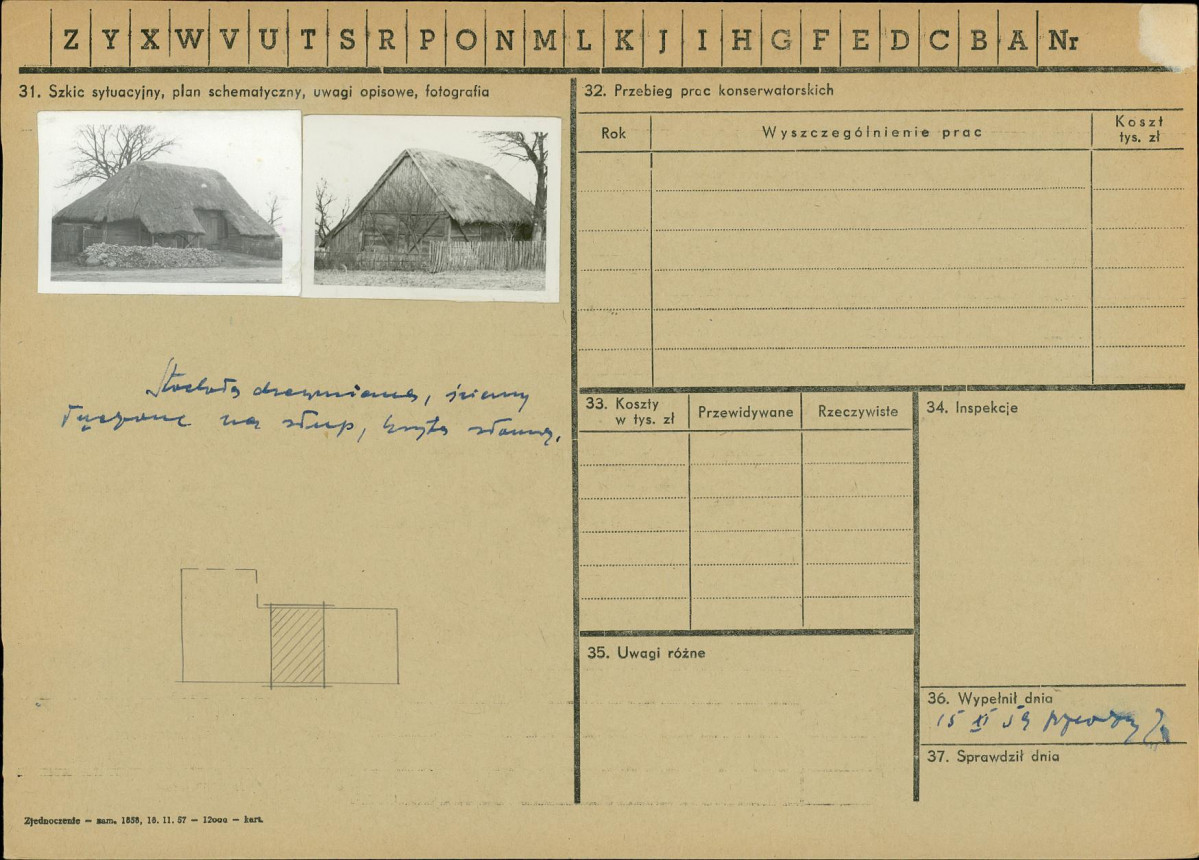 Z Y X W V U T S R P O N M L K J I H G F E D C B A Nr
31. Szkic sytuacyjny, plan schematyczny, uwagi opisowe, fotografia
Stodoła drewniana, ściany
łączone na słup, kryta słomą.
Zjednoczenie — zam. 1858, 16. 11. 57 — 12000 — kart.
32. Przebieg prac konserwatorskich
Rok Wyszczególnienie prac Koszt tys. zł
33. Koszty w tys. zł Przewidywane Rzeczywiste
34. Inspekcje
35. Uwagi różne
36. Wypełnił dnia
15 XI 59
37. Sprawdził dnia